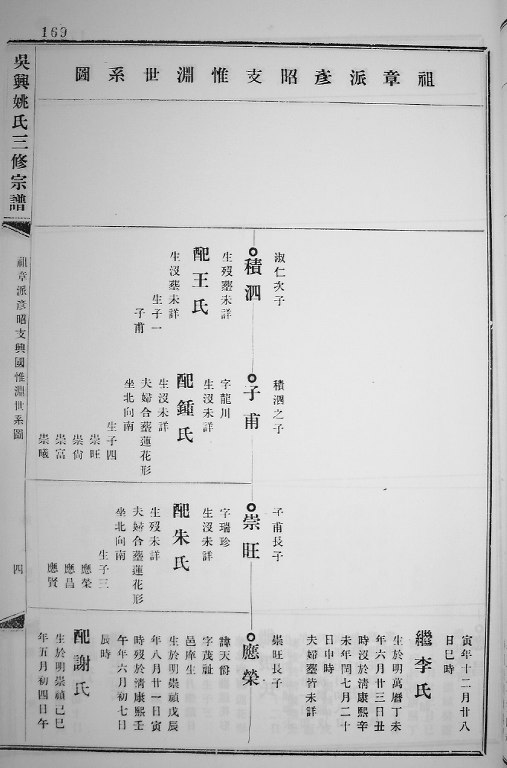 169
祖章派彥昭支惟淵世系圖
吳興姚氏三修宗譜
祖章派彥昭支興國惟淵世系圖
四
淑仁次子
積泗
生歿塟未詳
配王氏
生沒塟未詳
生子一
子甫
積泗之子
子甫
字龍川
生沒未詳
配鍾氏
生沒未詳
夫婦合塟蓮花形
坐北向南
生子四
崇旺
崇尙
崇富
崇曦
子甫長子
崇旺
字瑞珍
生沒未詳
配朱氏
生歿未詳
夫婦合塟蓮花形
坐北向南
生子三
應榮
應昌
應賢
寅年十二月廿八
日巳時
繼李氏
生於明萬曆丁未
年六月廿三日丑
時沒於清康熙辛
未年閏七月二十
日申時
夫婦塟皆未詳
崇旺長子
應榮
諱天爵
字茂祉
邑庠生
生於明崇禎戊辰
年八月廿一日寅
時歿於清康熙壬
午年六月初七日
辰時
配謝氏
生於明崇禎己巳
年五月初四日午